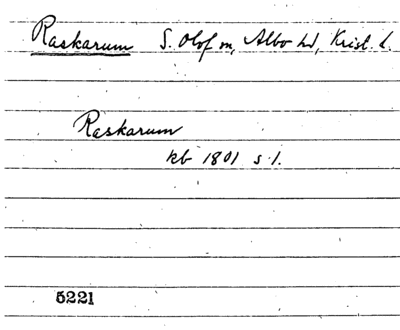 Raskarum S. Olof sn, Albo hd, Krist. l.
Raskarum
kb 1801 s 1.
5221